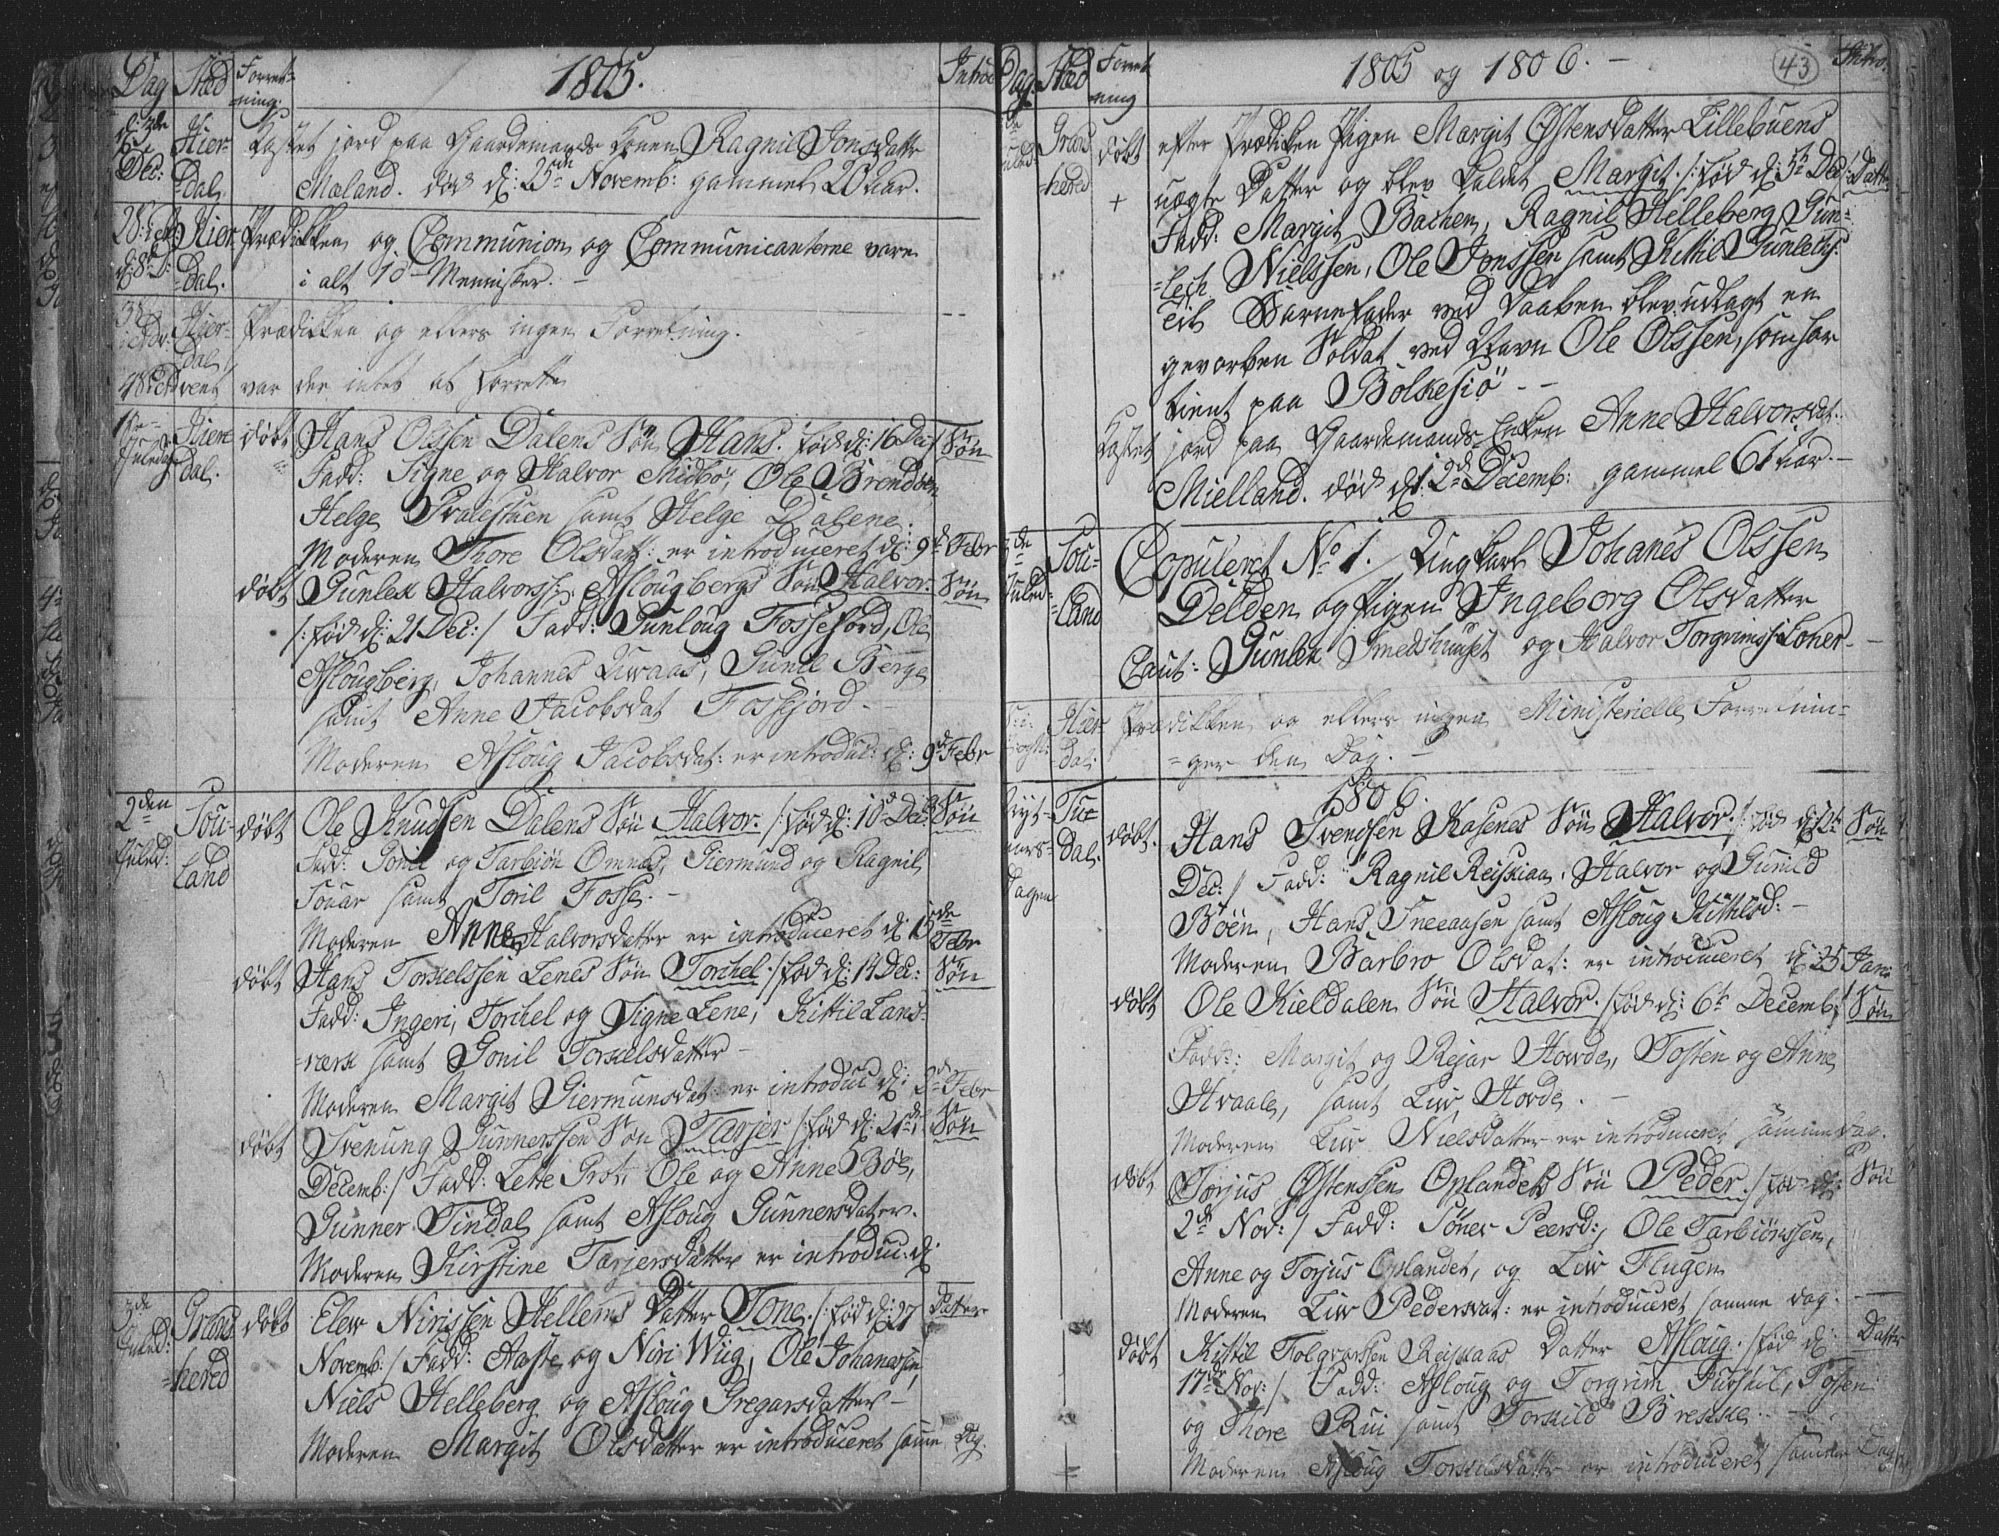 Dag Sted Forret-ning. 1805. Introd
Dec: Hier-dal Kastet jord paa Gaardemands Konen Ragnil Jonsdatter
Mæland. død d: 25de Novemb: gammel 20 aar.
Hier-dal. Prædikken og Communion og Communicanterne vare
i alt Mennisker. -
Hier-dal Prædikken og ellers ingen Forretning.
4 S. i Advent var der intet at forrette
Juledag Hier-dal. døbt Hans Olssen Dalens Søn Hans. /: fød d: 16 Dec :/ Søn
Fadd: Signe og Halvor Midbø, Ole Brendøen
Helge samt Helge Dalene.
Moderen Thore Olsdatt: er introduceret d: 9de Febr
døbt Gunlek Halvorss: Aslougbergs Søn Halvor. Søn
/: fød d: 21 Dec: / Fadd: Gunloug Fossefjord, Ole
Aslougberg, Johannes Kwaas, Gunil Berge
samt Anne Jacobsdat Fossefjord -
Moderen Asloug Jacobsdat: er introduc: d: 9de Febr
2den Juled: Sou-land døbt Ole Knudsen Dalens Søn Halvor. /: fød d: 10de Dec: Søn
Fadd: Gonil og Tarbiøn Omnes, Giermund og Ragnil
samt Toril Fosse. -
Moderen Anne Halvorsdatter er introduceret d: 15de Febr
døbt Hans Torkelssen Lenes Søn Torchel. /: fød d: 14 Dec: Søn
Fadd: Ingeri, Torchel og Signe Lene, Kittil Lans-
-værk samt Gonil Torkelsdatter -
Moderen Margit Giermunsdat: er introduc d: Febr
døbt Svenung Gunnerssen Søn Tarjer /: fød d: 21de Søn
Decemb: / Fadd: Lette Grot, Ole og Anne Bøe,
Gunner Tindal samt Asloug Gunnersdatter.
Moderen Kirstine Tarjersdatter er introduc: d:
3de Juled: Grans-hered døbt Elew Nirissen Hellems Datter Tone. /: fød d: 27 Datter
Novemb: / Fadd: Aaste og Niri Wiig, Ole Johanessen,
Niels Helleberg og Asloug Gregarsdatter -
Moderen Margit Olsdatter er introduceret same Dag.
Dag Sted Forret-ning 1805 og 1806. - 43 Intro.
Grans-hered døbt efter Prædiken Pigen Margit Østensdatter Lillebuens
+ uægte Datter og blev kaldet Margit. /: fød d: 5te Dec: Datter
Fadd: Margit Bachen, Ragnil Helleberg, Gun-
-lech Nielssen, Ole Jonssen samt Kittil Gunleks:
Til Barnefader ved Daaben blev udlagt en
gevorben Soldat ved Navn Ole Olssen, som har
tient paa Bolkesiø - -
Kastet jord paa Gaardemands-Enken Anne Halvorsdat:
Mielland. død d: 2de Decemb: gammel 61 aar. -
Juled: Sou-land Copuleret No 1. Ungkarl Johanes Olssen
Delden og Pigen Ingeborg Olsdatter
Caut: Gunlek Smedshuuset og Halvor Torgrimss: Loner-
Hier-dal: Prædikken og ellers ingen Ministerielle Forretnin-
-ger den Dag. -
1806.
Nyt-aars-Dagen Tu-dal. døbt. Hans Svendsen Kasenes Søn Halvor. /: fød d: Søn
Dec: / Fadd: Ragnil Reiskaas, Halvor og Gunild
Bøen, Hans Sneaasen samt Asloug Kittilsd: -
Moderen Barbro Olsdat: er introduceret d: 25 Jan:
døbt Ole Kieldalen Søn Halvor. /: fød d: 6te Decemb: / Søn
Fadd: Margit og Rejar Howde, Tosten og Anne
Hvaale, samt Liw Hovde. -
Moderen Liw Nielsdatter er introduceret samme Dag.
døbt Torjus Østenssen Oplandets Søn Peder. /: fød d: Søn
2de Nov: / Fadd: Søner Peersd:, Ole Tarbiørnssen,
Anne og Torjus Oplandet, og Liw Flugen
Moderen Liw Pedersdat: er introduceret samme Dag. -
døbt Kittil Folqvarssen Reiskaas Datter Asloug. /: fød d: Datter
17de Nov: / Fadd: Asloug og Torgrim Tosten
og Thore Rui samt Torkild Brekke. -
Moderen Asloug Torkilsdatter er introduceret samme Dag